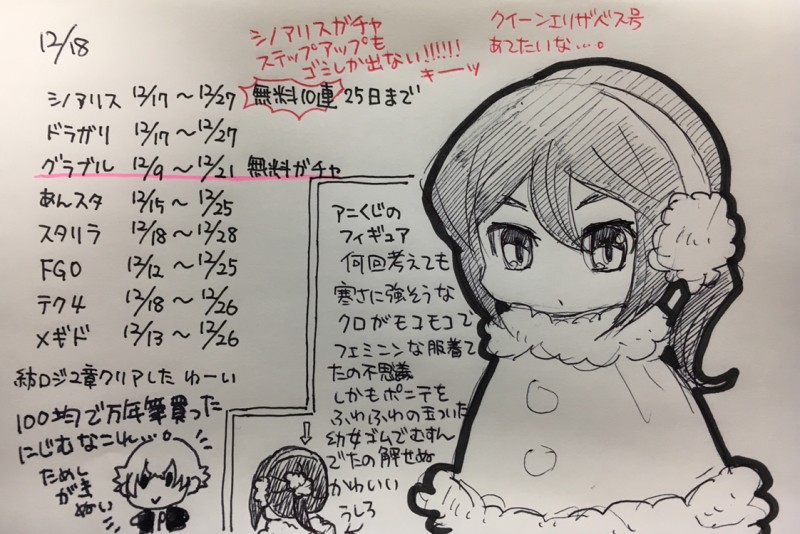 12/18
シノアリスガチャ
ステップアップも
ゴミしか出ない!!!!!!
キーッ
クイーンエリザベス号
あてたいな…。
シノアリス 12/17 〜 12/27 無料10連 25日まで
ドラガリ 12/17 〜 12/27
グラブル 12/9 〜 12/21 無料ガチャ
あんスタ 12/15 〜 12/25
スタリラ 12/18 〜 12/28
FGO 12/12 〜 12/25
テク4 12/18 〜 12/26
メギド 12/13 〜 12/26
紡ロジ2章クリアした わーい
100均で万年筆買った
にじむなこれ…。
ためし
がき
ぬい
アニくじの
フィギュア
何回考えても
寒さに強そうな
クロがモコモコで
フェミニンな服着て
たの不思議
しかもポニテを
ふわふわの玉ついた
幼女ゴムでむすん
でたの解せぬ
かわいい
うしろ